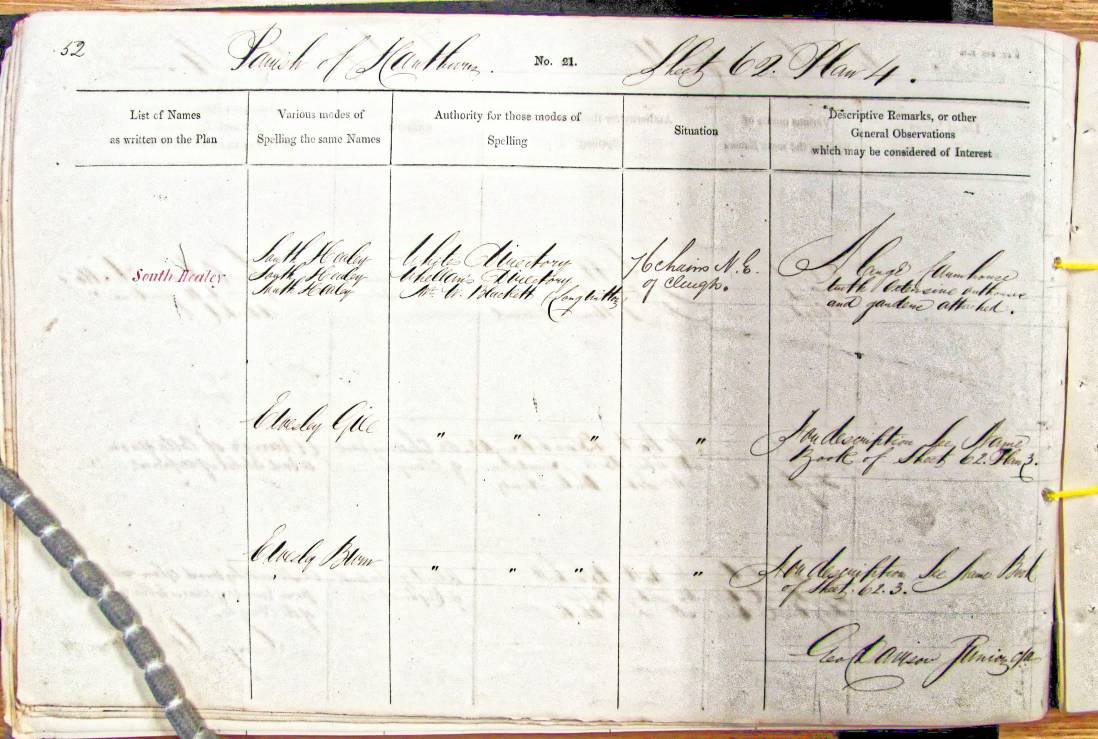 52
Parish of Hawthorn. No. 21. Sheet 62. Plan 4.
List of Names
as written on the Plan
Various modes of
Spelling the same Names
Authority for those modes of
Spelling
Situation
Descriptive Remarks, or other
General Observations
which may be considered of Interest
South Healey
South Healey
South Healey
South Healey
White Directory
Directory
Mr. W. Blackett
chains N.E.
of Cleugh.
A large farmhouse
with extensive outhouse
and gardens attached.
Elvesley Gill
" " " "
For description See Name
Book of Sheet 62. Plan 3.
Elvesly Burn
" " " "
For description See Name Book
of Sheet. 62. 3.
Geo